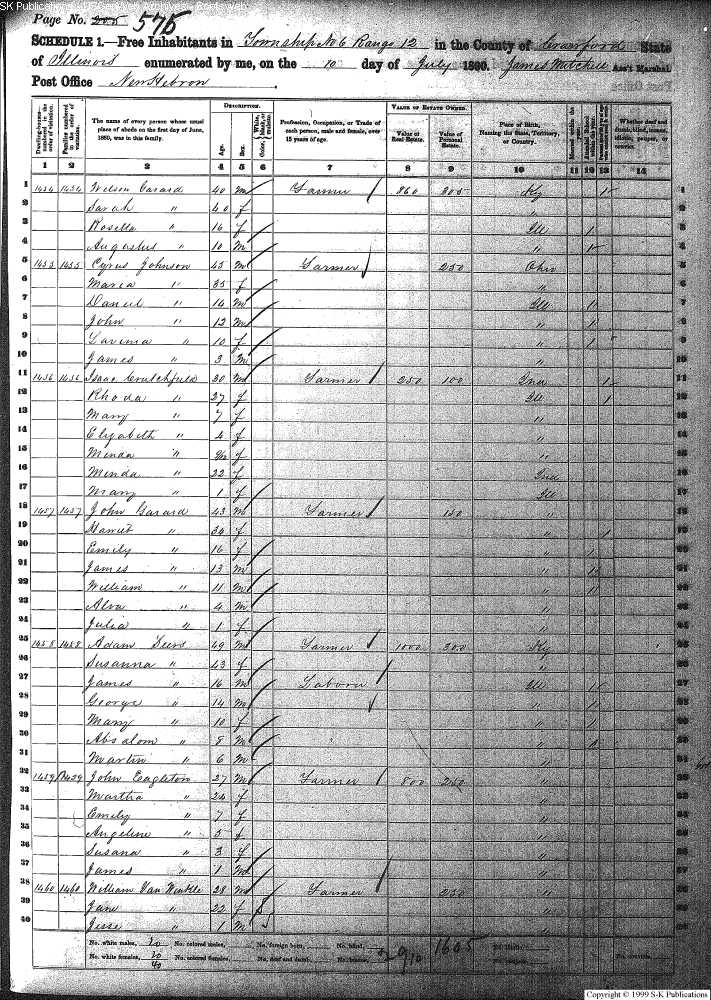 SK Publications, USGenWeb Archives, Rootsweb
Page No. 205 575
SCHEDULE 1.—Free Inhabitants in Township No 6 Range 12 in the County of Crawford State
of Illinois enumerated by me, on the 10 day of July 1860. James Mitchell Ass't Marshal.
Post Office New Hebron
Dwelling-houses—numbered in the order of visitation.
Families numbered in the order of visitation.
The name of every person whose usual place of abode on the first day of June, 1860, was in this family.
DESCRIPTION.
Age.
Sex.
Color, White, black, or mulatto.
Profession, Occupation, or Trade of each person, male and female, over 15 years of age.
VALUE OF ESTATE OWNED.
Value of Real Estate.
Value of Personal Estate.
Place of Birth, Naming the State, Territory, or Country.
Married within the year.
Attended School within the year.
Whether deaf and dumb, blind, insane, idiotic, pauper, or convict.
1 2 3 4 5 6 7 8 9 10 11 12 13 14
1 1454 1454 Wilson Garard 40 m Farmer 860 305 Ky 1 1
2 Sarah " 40 f " 2
3 Rosella " 16 f Ill 1 3
4 Augustus " 10 m " 1 4
5 1455 1455 Cyrus Johnson 45 m Farmer 250 Ohio 5
6 Maria " 35 f " 6
7 Daniel " 14 m Ill 1 7
8 John " 12 m " 1 8
9 Lavinia " 10 f " 1 9
10 James " 3 m " 10
11 1456 1456 Isaac Crutchfield 30 m Farmer 250 100 Ind 1 11
12 Rhoda " 27 f Ill 1 12
13 Mary " 7 f " 13
14 Elizabeth " 4 f " 14
15 Minda " f " 15
16 Minda " 22 f Ind 16
17 Mary " 1 f Ill 17
18 1457 1457 John Garard 43 m Farmer 150 " 18
19 Harriet " 34 f " 1 19
20 Emily " 16 f " 1 20
21 James " 13 m " 1 21
22 William " 11 m " 1 22
23 Alva " 4 m " 23
24 Julia " 1 f " 24
25 1458 1458 Adam Deers 49 m Farmer 1000 300 Ky 25
26 Susanna " 43 f " 26
27 James " 16 m Laborer Ill 1 27
28 George " 14 m " 1 28
29 Mary " 10 f " 1 29
30 Absalom " 8 m " 1 30
31 Martin " 6 m " 31
32 1459 1459 John Eagleton 27 m Farmer 800 250 " 32
33 Martha " 24 f " 33
34 Emily " 7 f " 34
35 Angeline " 5 f " 35
36 Susana " 3 f " 36
37 James " 1 m " 37
38 1460 1460 William Van Winkle 28 m Farmer 250 " 38
39 Jane " 22 f " 39
40 Jesse " 1 m " 40
No. white males, 20 No. colored males, No. foreign born, No. blind, 2910 1605
No. white females, 20 No. colored females, No. deaf and dumb, No. insane,
40
Copyright © 1999 S-K Publications